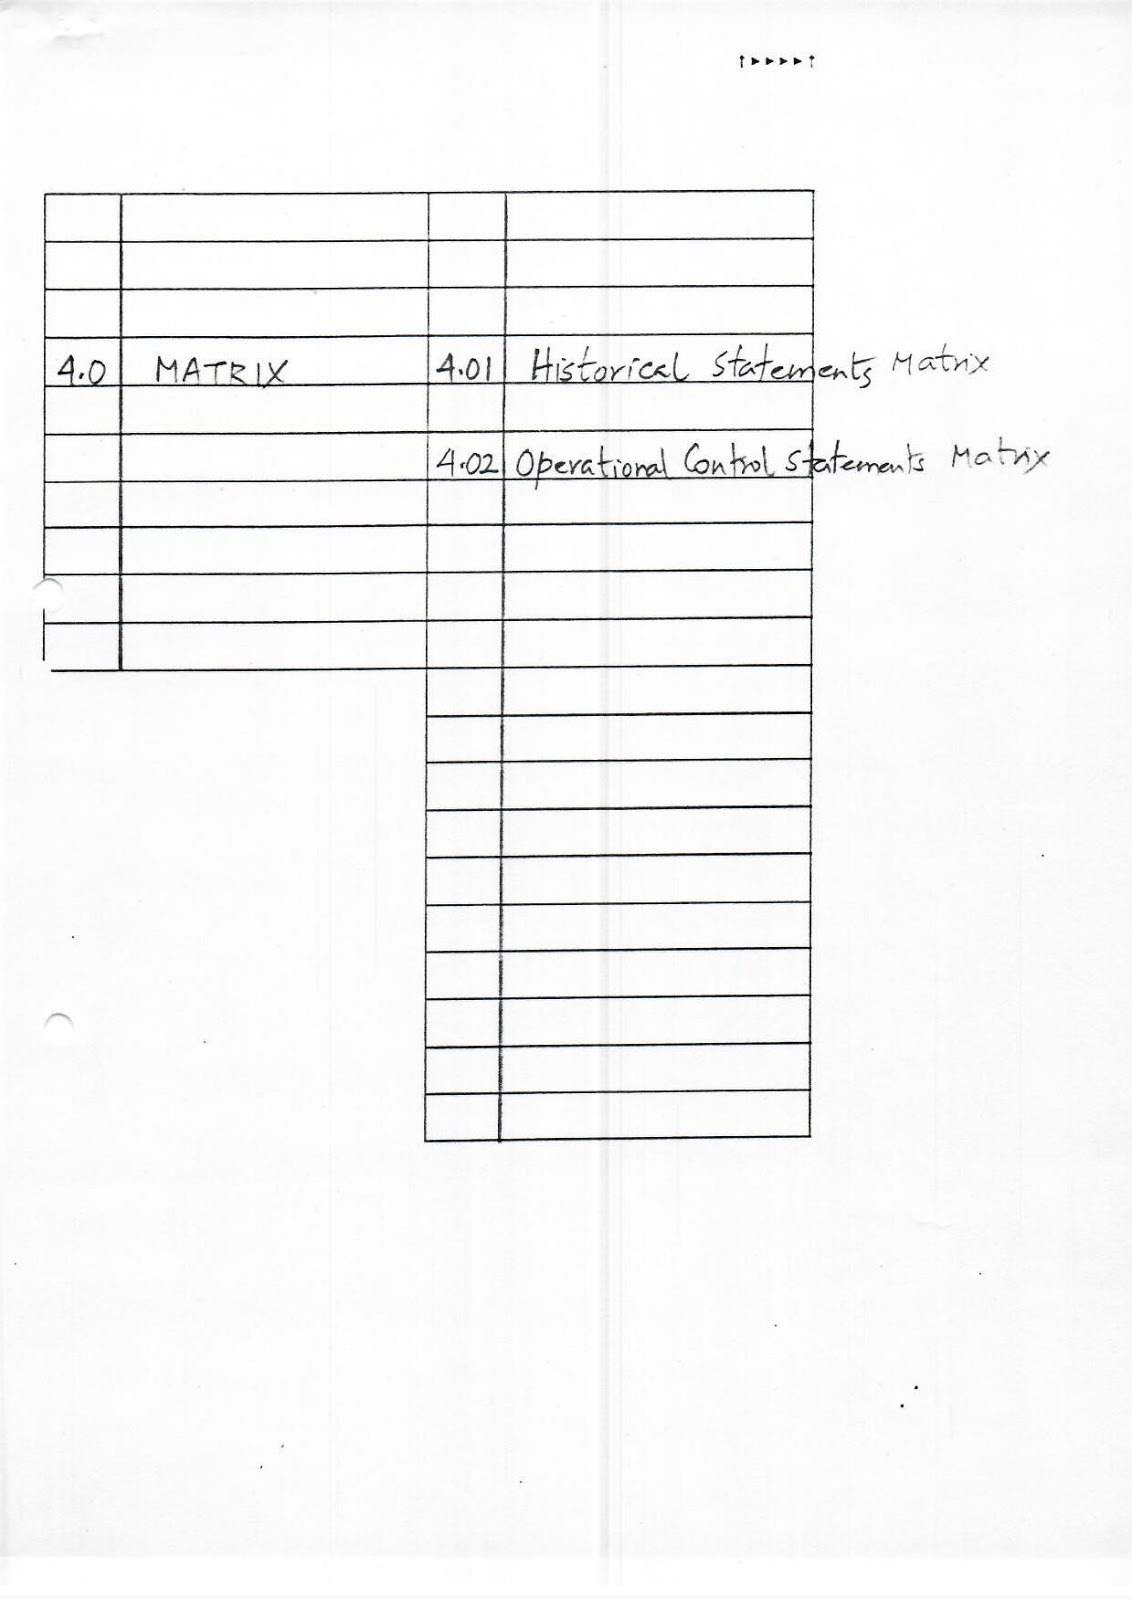 4.0 MATRIX 4.01 Historical Statements Matrix
4.02 Operational Control Statements Matrix